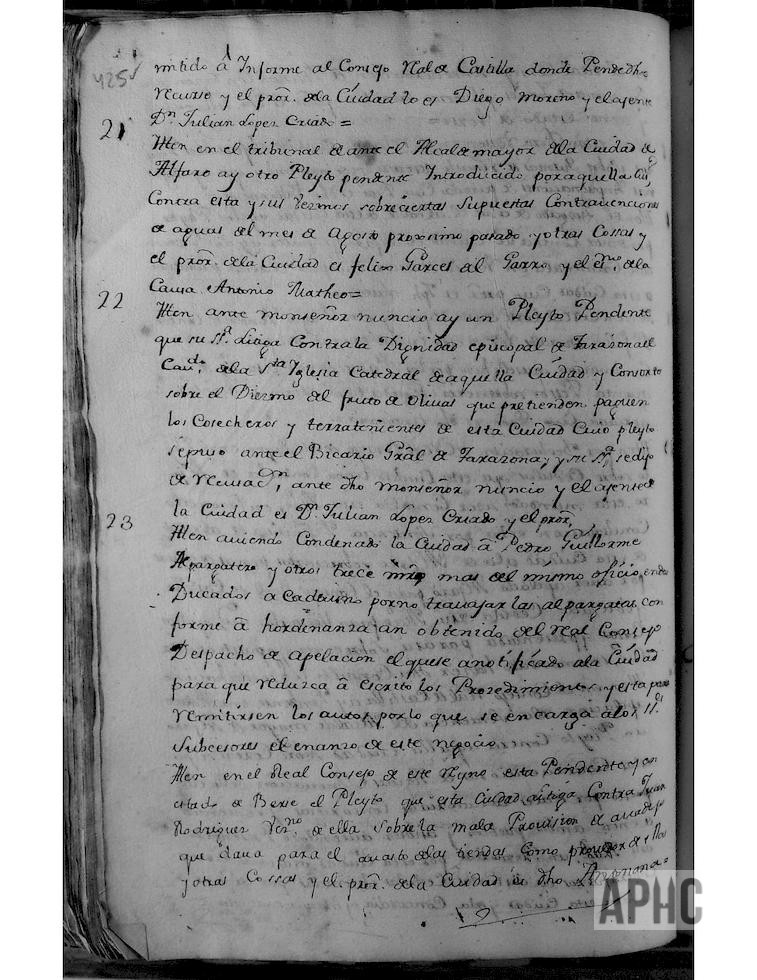 425
mitido â Informe al Consejo Real de Castilla donde Pende dho
Recurso y el pror. dela Ciudad lo es Diego Moreno y el ajente
Dn. Julian Lopez Criado =
21
Iten en el tribunal de ante el Alcalde mayor dela Ciudad de
Alfaro ay otro Pleyto pendente Introducido por aquella
Contra esta y sus Vezinos sobre ciertas Supuestas Contravenciones
de aguas del mes de Agosto proximo pasado y otras Cossas y
el pror. dela Ciudad es felix Garces al Garro y el esno. dela
Causa Antonio Matheo =
22
Iten ante monseñor nuncio ay un Pleyto Pendente
que su Sa. Litiga Contra la Dignidad episcopal de Tarazona el
Cavdo. dela Sta Yglesia Catedral de aquella Ciudad y Consorte
sobre el Diezmo del fruto de olivas que pretienden paguen
los Cosecheros y terratenientes de esta Ciudad Cuio pleyto
se puso ante el Bicario Gral de Tarazona, y su Sa. se dijo
de Recusacon. ante dho monseñor nuncio y el ajente de
la Ciudad es Dn. Julian Lopez Criado y el pror.
23
Iten aviendo Condenado la Ciudad â Pedro Guillorme
Alpargatero y otros trece mas del mismo oficio en dos
Ducados a Cada uno por no travajar las alpargatas con
forme â hordenanza an obtenido del Real Consejo
Despacho de apelacion el que se a notificado ala Ciudad
para que reduzca â escrito los Prozedimientos y esta para
remitirsen los autos por lo que se encarga alos SSes.
Subcesores el enanzo de este negocio
Iten en el Real Consejo de este Reyno esta Pendente y en
estado de Berse el Pleyto que esta Ciudad Litiga Contra Juan
Rodriguez Vezno. de ella sobre la mala Provision de
que dava para el avasto delas tiendas Como provedor de ellas
y otras Cossas y el pror. dela Ciudad es dho
APHC